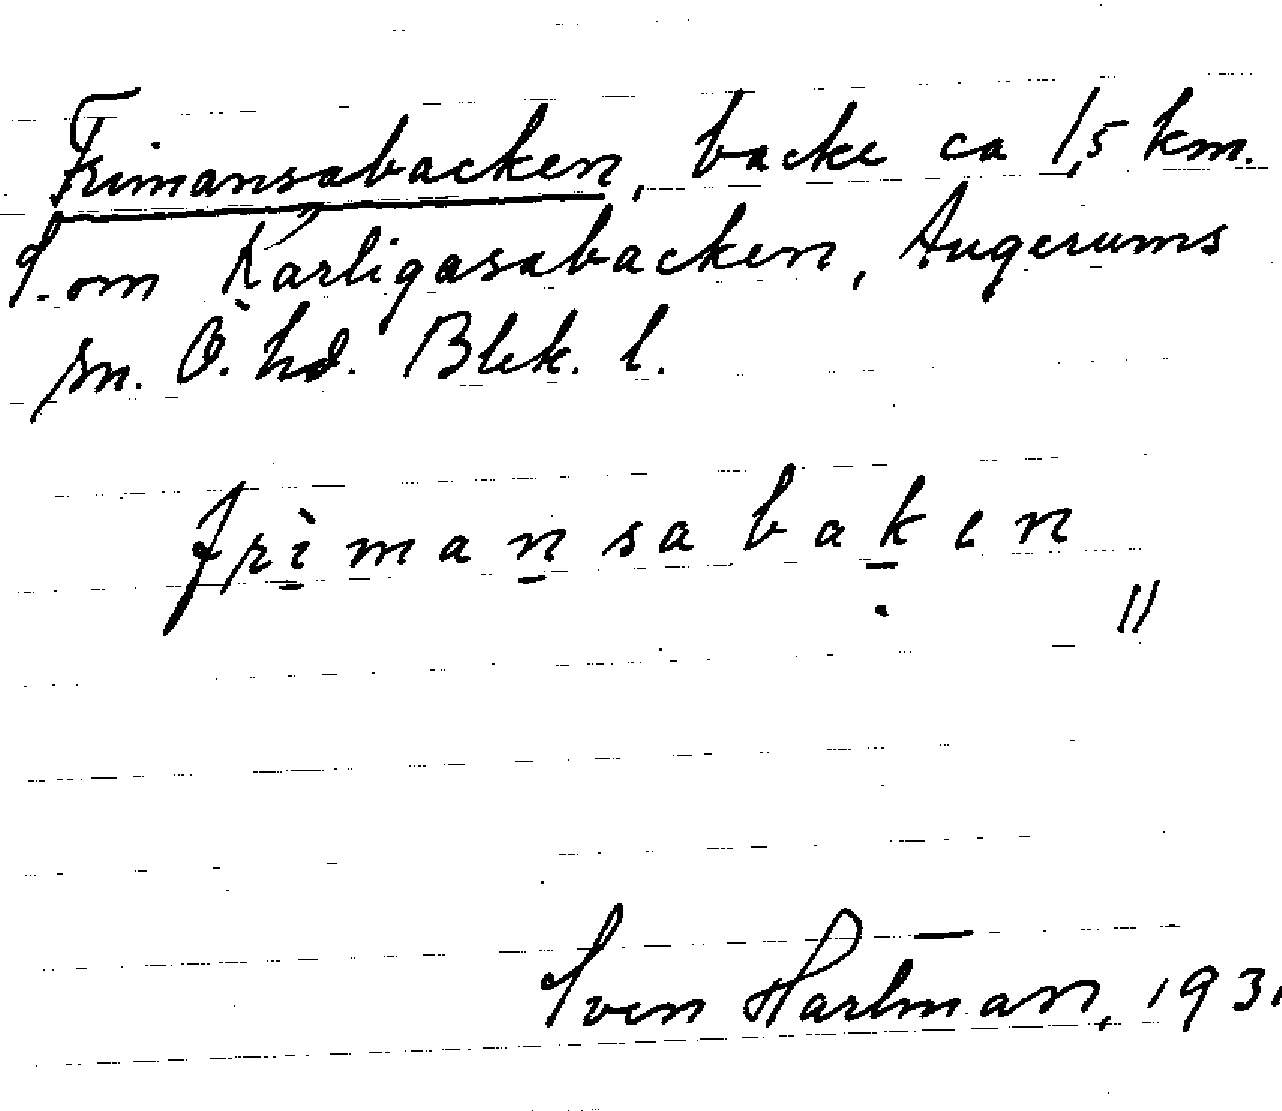 Frimansabacken, backe ca 1,5 km.
S. om Karligasabacken, Augerums
sn. Ö. hd. Blek. l.
frimansabaken
Sven Hartman, 193